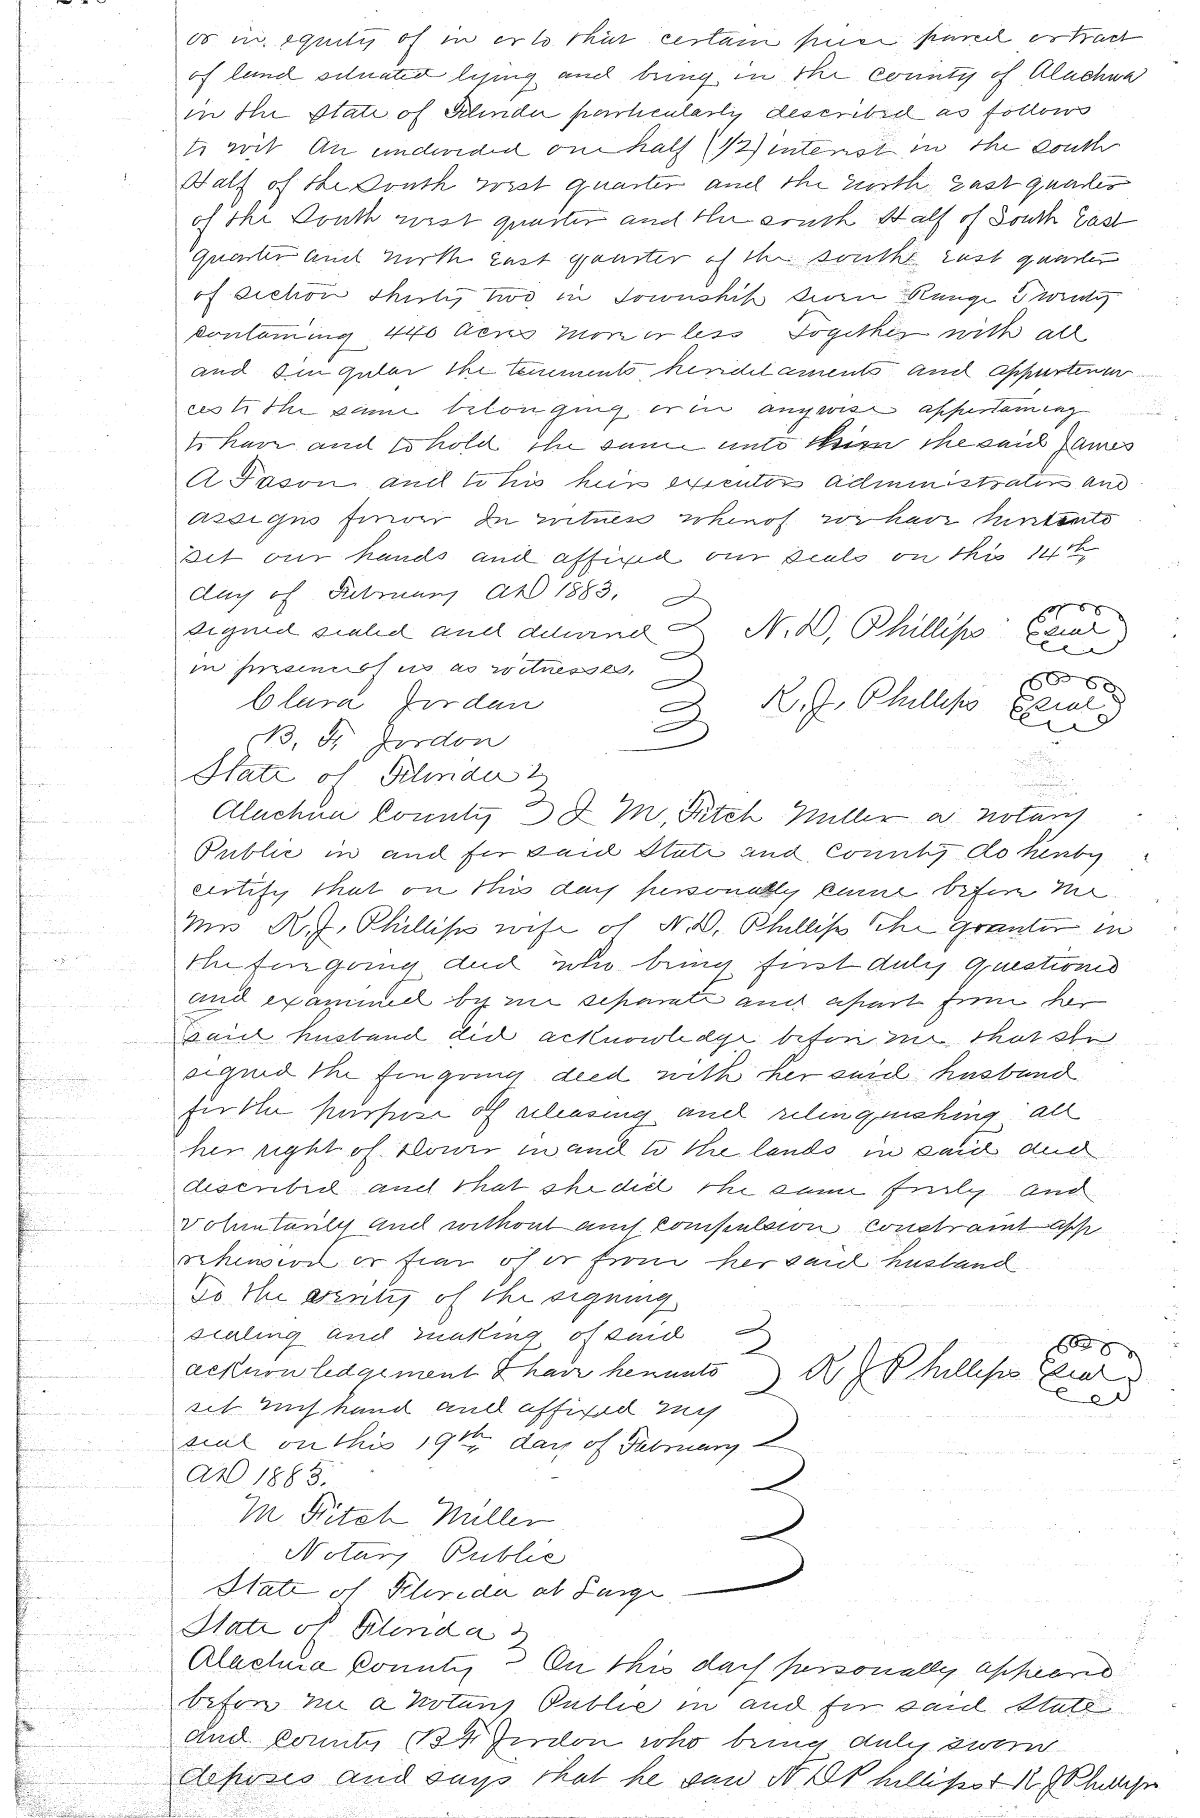 or in equity of in or to that certain piece parcel or tract
of land situated lying and being in the county of Alachua
in the State of Florida particularly described as follows
to wit An undevided one half (1/2) interest in the south
Half of the South west quarter and the north East quarter
of the South west quarter and the south Half of South East
quarter and north East quarter of the south East quarter
of section thirty two in township seven Range Twenty
containing 440 Acres more or less Together with all
and singular the tenements heridetaments and appurtenan
ces to the same belonging or in anywise appertaining
to have and to hold the same unto him the said James
A Fason and to his heirs executors administrators and
assigns forever In witness whereof we have hereunto
set our hands and affixed our seals on this 14th
day of February AD 1883.
signed sealed and delivered N. D, Phillips Seal
in presence of us as witnesses.
Clara Jordan R. J. Phillips Seal
B. F. Jordon
State of Florida
Alachua County I M. Fitch Miller a notary
Public in and for said State and County do hereby
certify that on this day personally came before me
Mrs R. J. Phillips wife of N. D. Phillips the grantor in
the foregoing deed who being first duly questioned
and examined by me separate and apart from her
said husband did acknowledge before me that she
signed the foregoing deed with her said husband
for the purpose of releasing and relinquishing all
her right of Dower in and to the lands in said deed
described and that she did the same freely and
voluntarily and without any compulsion constraint app
rehension or fear of or from her said husband
To the verity of the signing
sealing and making of said
acknowledgement I have hereunto R J Phillips Seal
set my hand and affixed my
seal on this 19th day of February
AD 1883.
M Fitch Miller
Notary Public
State of Florida at Large
State of Florida
Alachua County On this day personally appeared
before me a Notary Public in and for said State
and County B F Jordon who being duly sworn
deposes and says that he saw N D Phillips & R J Phillips